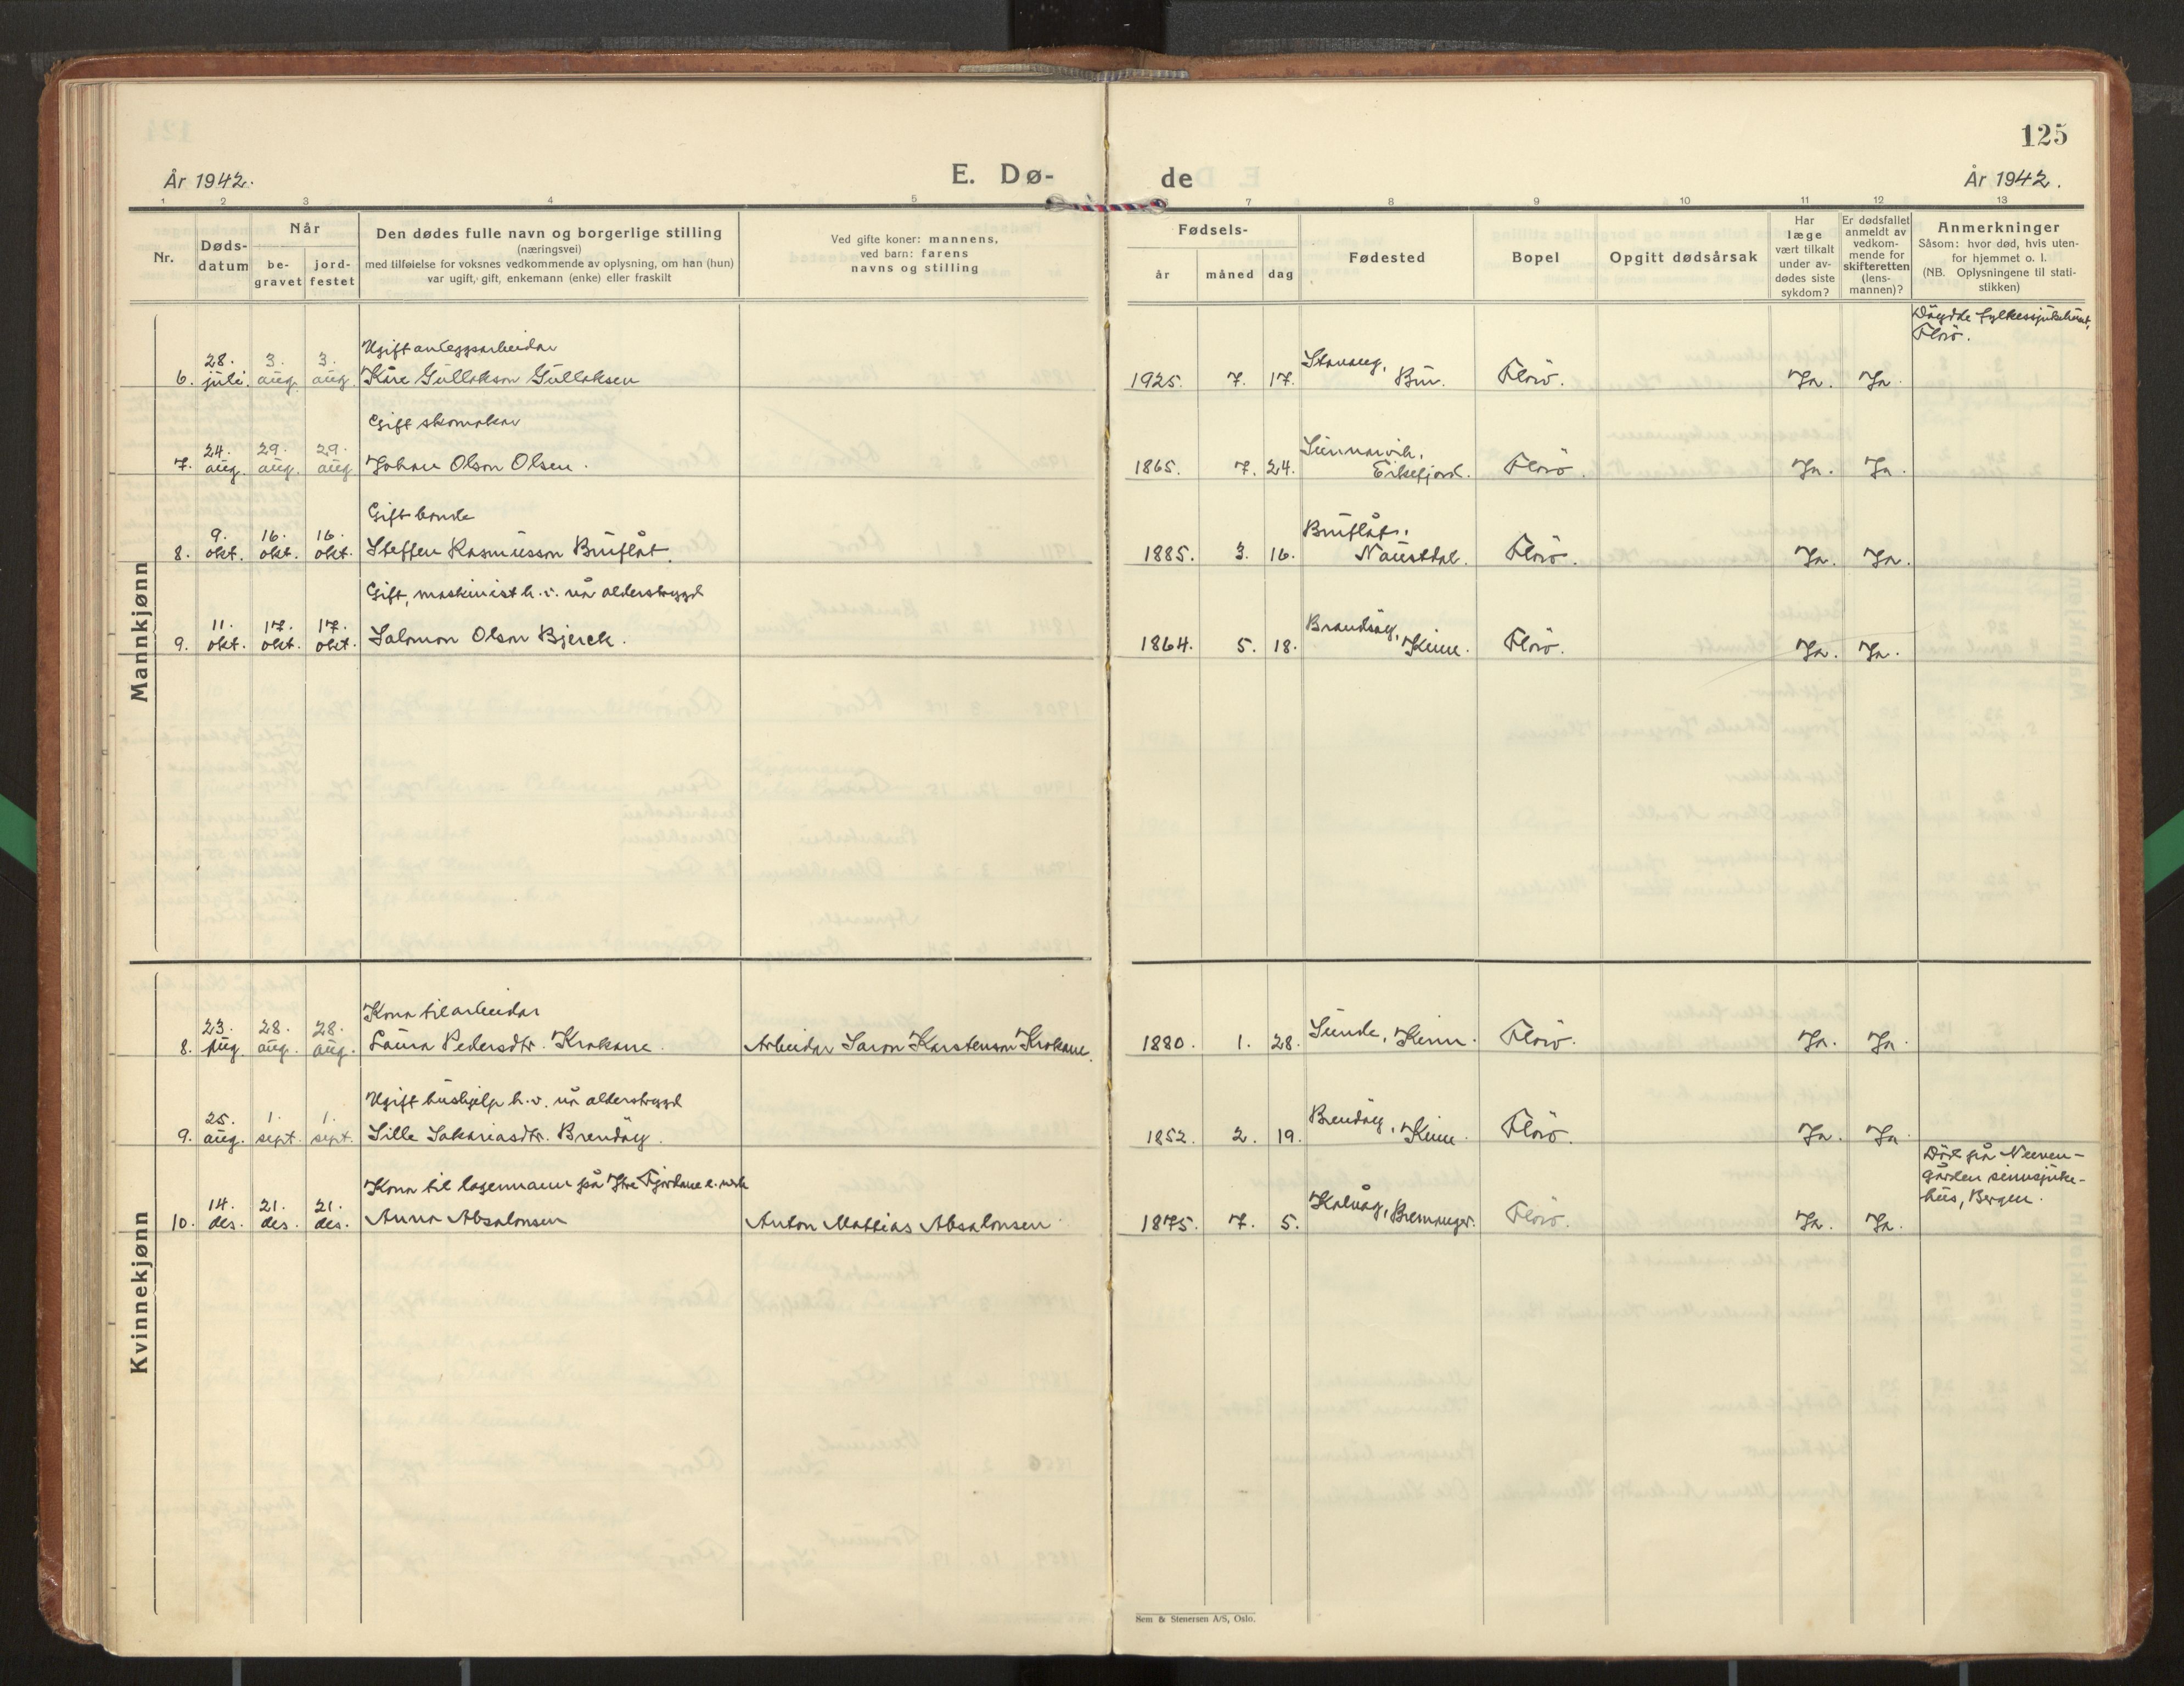 125
År 1942.
E. Dø-
de
År 1942.
1 2 3 4 5 6 7 8 9 10 11 12 13
Nr.
Døds-
datum
Når
be-
gravet
jord-
festet
Den dødes fulle navn og borgerlige stilling
(næringsvei)
med tilføielse for voksnes vedkommende av oplysning, om han (hun)
var ugift, gift, enkemann (enke) eller fraskilt
Ved gifte koner: mannens,
ved barn: farens
navns og stilling
Fødsels-
år måned dag
Fødested
Bopel
Opgitt dødsårsak
Har
læge
vært tilkalt
under av-
dødes siste
sykdom?
Er dødsfallet
anmeldt av
vedkom-
mende for
skifteretten
(lens-
mannen)?
Anmerkninger
Såsom: hvor død, hvis uten-
for hjemmet o. l.
(NB. Oplysningene til stati-
stikken)
Mannkjønn
Døydde fylkessjukehuset,
Florø.
Ugift anleggsarbeidar
28. 3. 3.
6. juli. aug. aug. Kåre Gullakson Gullaksen 1925. 7. 17. Stavang, Bru. Florø. Ja. Ja.
Gift skomakar
24. 29. 29.
7. aug. aug. aug. Johan Olson Olsen. 1865. 7. 24. Sunnarvik, Eikefjord. Florø. Ja. Ja.
Gift bonde
9. 16. 16.
8. okt. okt. okt. Steffen Rasmusson Bruflåt. 1885. 3. 16. Bruflåt, Naustdal. Florø. Ja. Ja.
Gift, maskinist h.v. nå alderstrygd
11. 17. 17.
9. okt. okt. okt. Salomon Olson Bjerck. 1864. 5. 18. Brandsøy, Kinn. Florø. Ja. Ja.
Kvinnekjønn
Kona til arbeidar
23. 28. 28.
8. aug. aug. aug. Laura Pedersdtr. Krokane. Arbeidar Saron Karstenson Krokane. 1880. 1. 28. Sunde, Kinn. Florø. Ja. Ja.
Ugift hushjelp h.v. nå alderstrygd
25. 1. 1.
9. aug. sept. sept. Sille Sakariasdtr. Brendøy. 1852. 2. 19. Brendøy, Kinn. Florø. Ja. Ja.
Død på Neeven-
gården sinnsjuke-
hus, Bergen.
Kona til lagermann på Ytre Fjordane e. verk
14. 21. 21.
10. des. des. des. Anna Absalonsen Anton Mattias Absalonsen 1875. 7. 5. Kalvåg, Bremanger. Florø. Ja. Ja.
Sem & Stenersen A/S, Oslo.